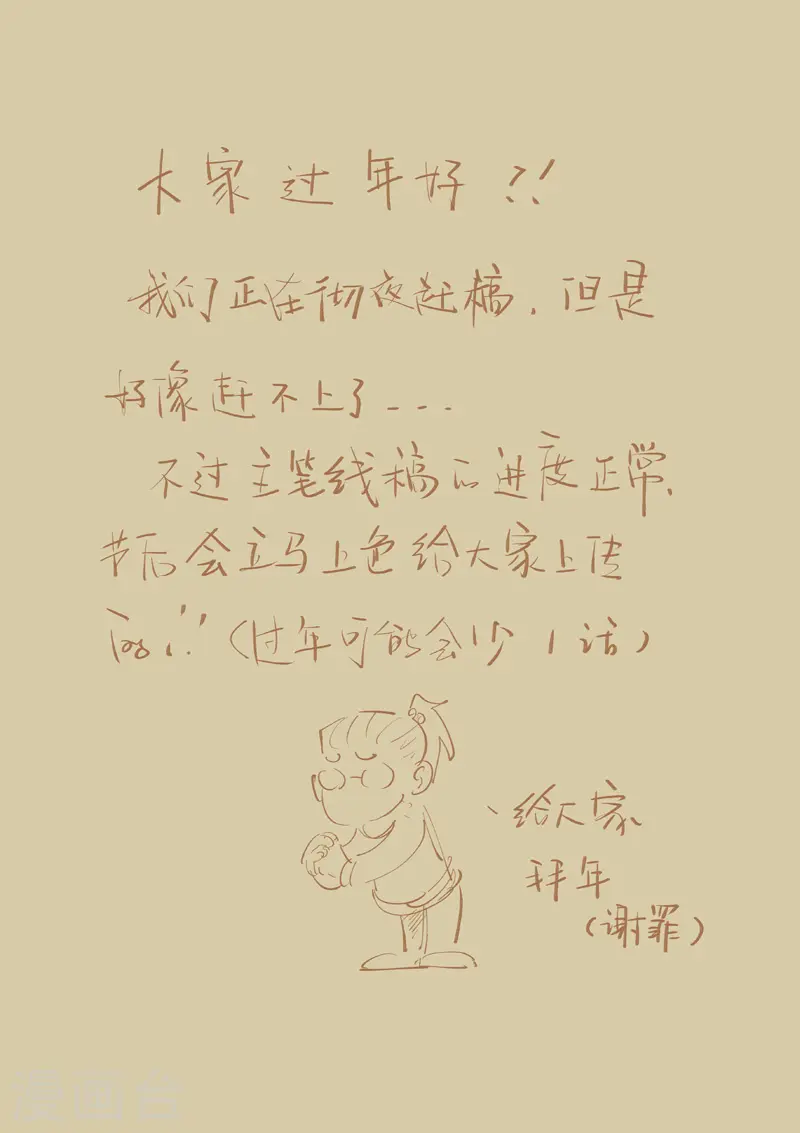 大家过年好!!
我们正在彻夜赶稿，但是
好像赶不上了---
不过主笔线稿的进度正常，
节后会立马上色给大家上传
的!!(过年可能会少1话)
、给大家
拜年
(谢罪)
漫画台